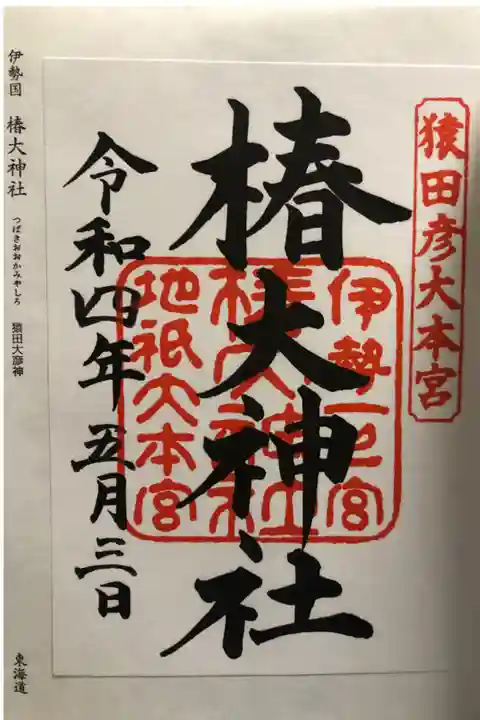 猿田彦大本宮
椿大神社
伊勢一之宮
椿大神社
地祇大本宮
令和四年五月三日
伊勢国 椿大神社 つばきおおかみやしろ 猿田大彦神
東海道